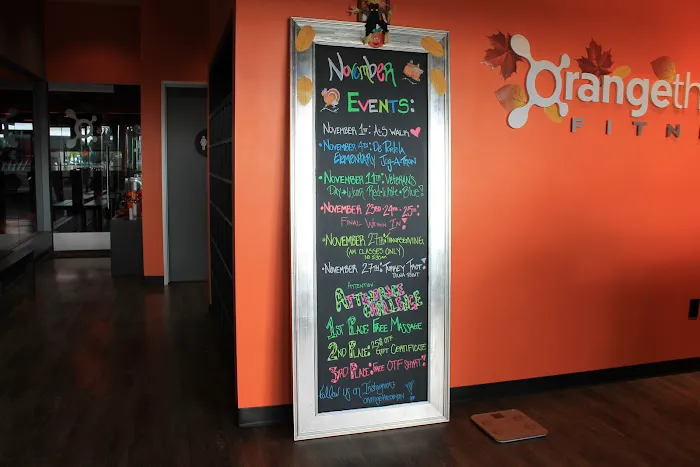 November
Events:
November 1st: ALS Walk
• November 4th: De Portola
Elementary Jog-A-Tron
• November 11th: Veterans
Day • Wear Red • White • Blue!
• November 23rd • 24th • 25th:
Final Weigh In!
• November 27th: Thanksgiving
(AM Classes Only)
• November 27th: Turkey Trot!
Attention:
Attendance
Challenge
1st Place: Free Massage
2nd Place: 25% off
Gift Certificate
3rd Place: Free OTF Shirt!
Follow us on Instagram!
Oranget
FITN